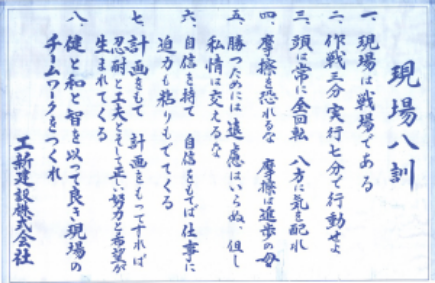 現場八訓
一、現場は戦場である
二、作戦三分実行七分で行動せよ
三、頭は常に全回転 八方に気を配れ
四、摩擦を恐れるな 摩擦は進歩の母
五、勝つためには遠慮はいらぬ、但し
私情は交えるな
六、自信を持て 自信をもてば仕事に
迫力も粘りもでてくる
七、計画をもて 計画をもってすれば
忍耐と工夫とそして正しい努力と希望が
生まれてくる
八、健と和と智を以って良き現場の
チームワークをつくれ
工新建設株式会社